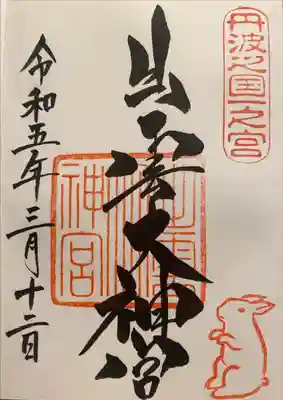 丹波之国一之宮
出雲大神宮
出雲神宮
令和五年三月十二日